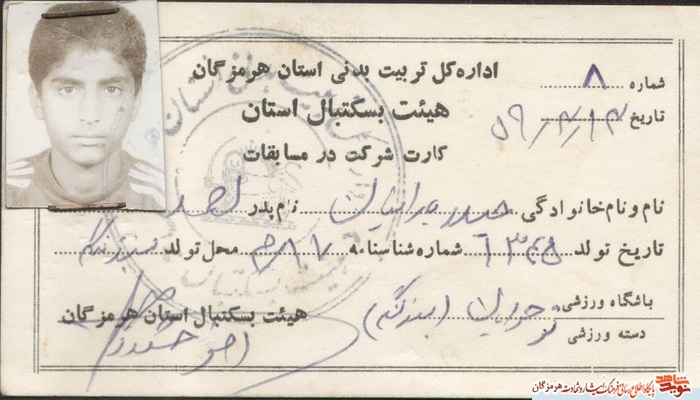 اداره کل تربیت بدنی استان هرمزگان
هیئت بسکتبال استان
کارت شرکت در مسابقات
شماره ۸
تاریخ ۵۹/۳/۱۳
نام و نام خانوادگی حیدر نام پدر احمد
تاریخ تولد ۱۳۴۵ شماره شناسنامه محل تولد بندرلنگه
باشگاه ورزشی
دسته ورزشی (بندرلنگه)
هیئت بسکتبال استان هرمزگان
نوید شاهد پایگاه اطلاع رسانی فرهنگ ایثار و شهادت هرمزگان